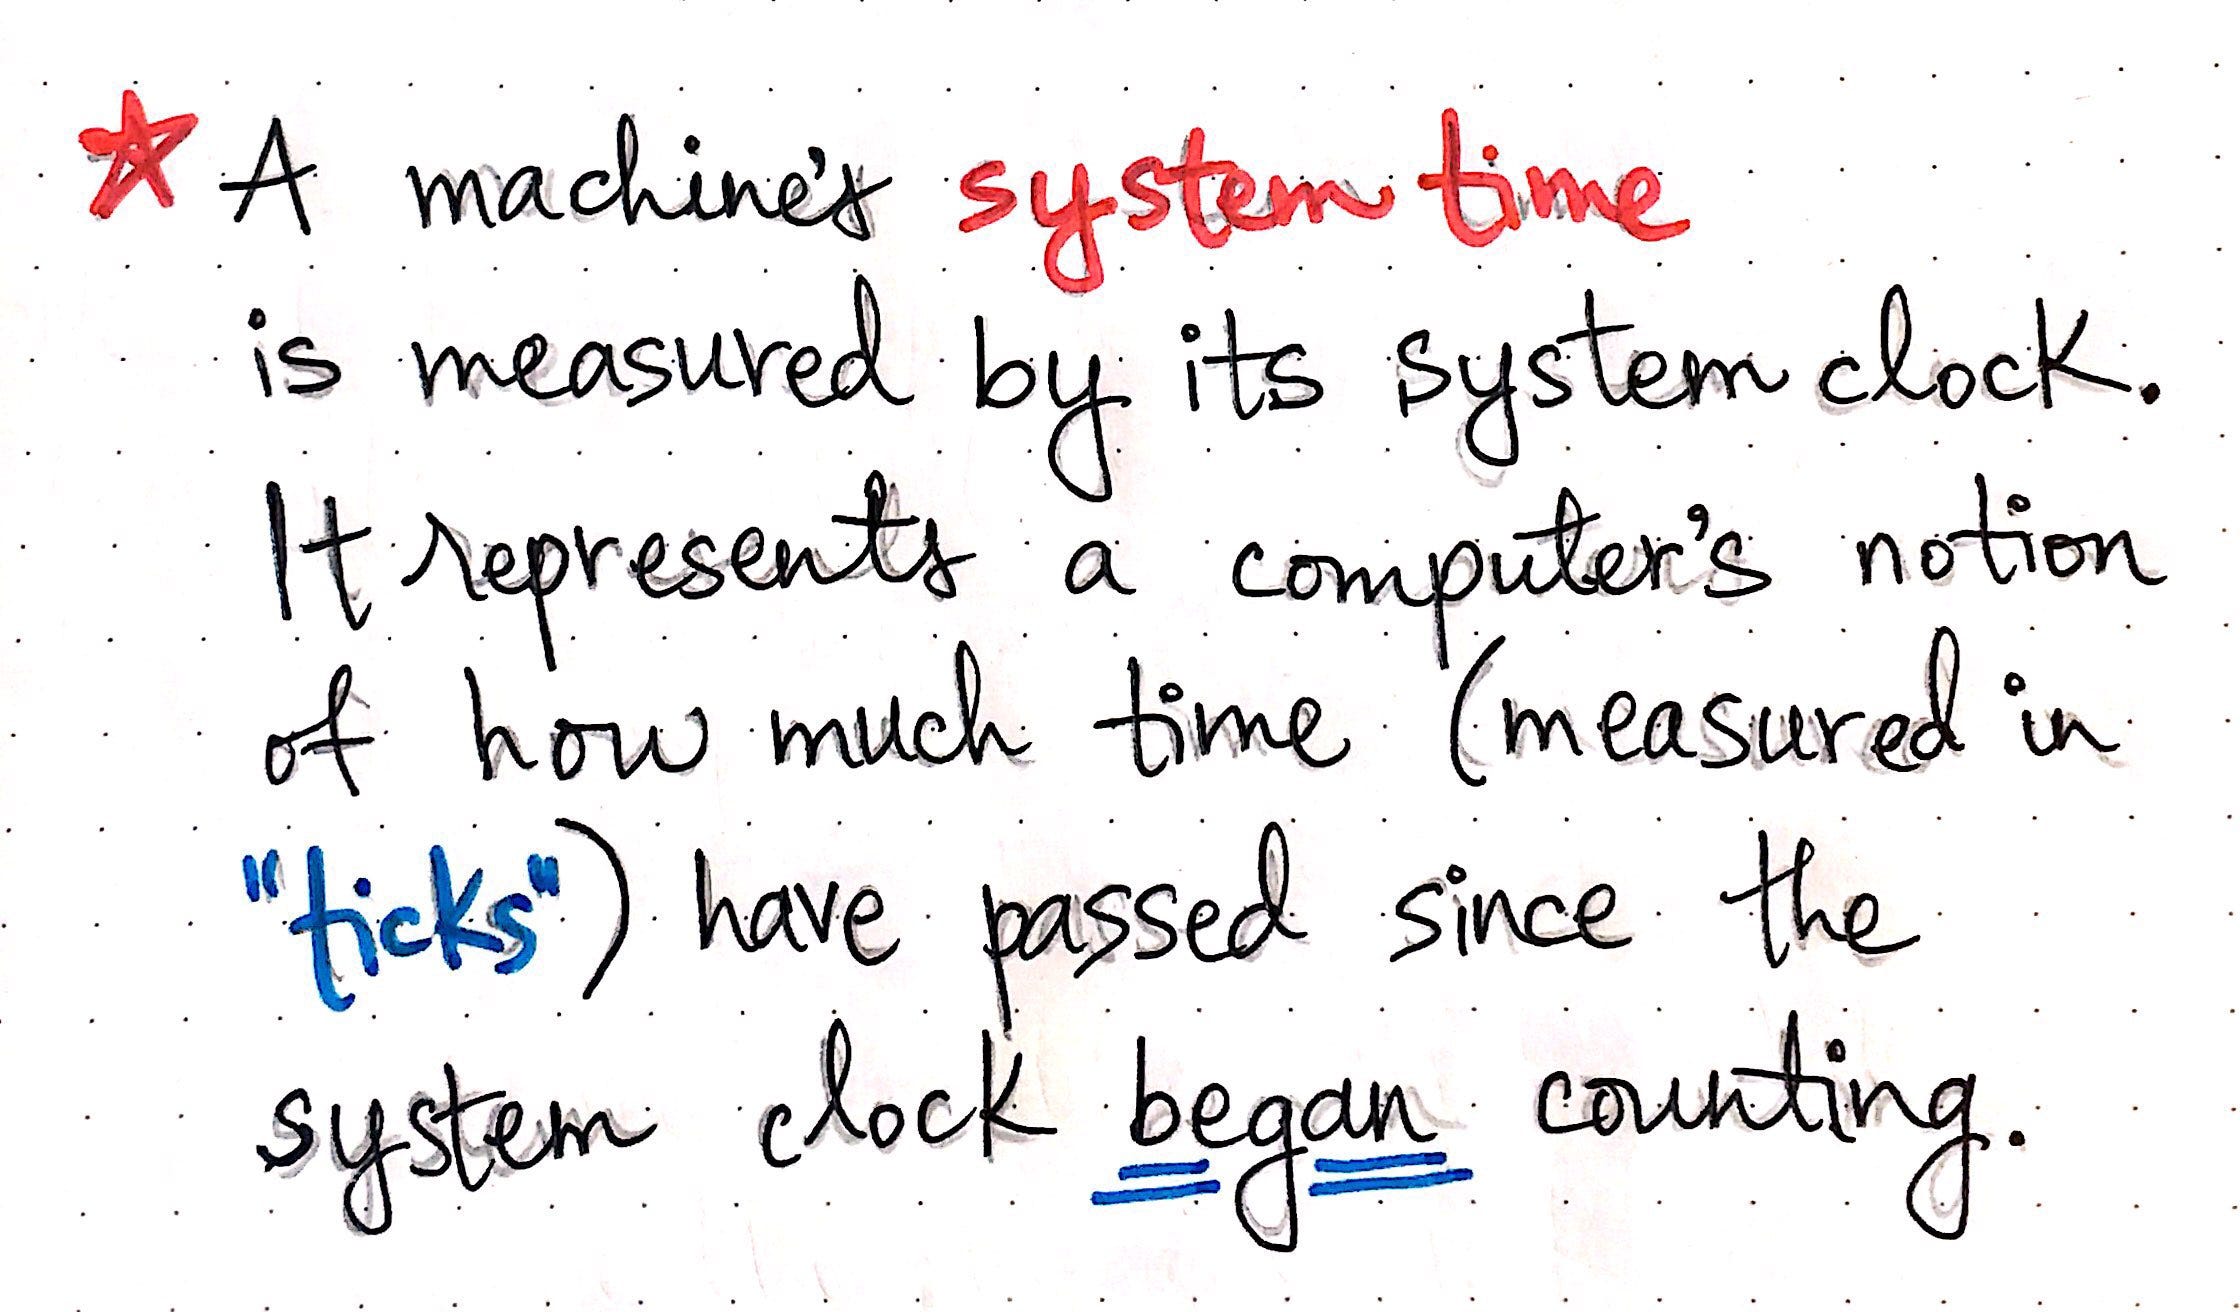 ☆ A machine's system time
is measured by its system clock.
It represents a computer's notion
of how much time (measured in
"ticks") have passed since the
system clock began counting.